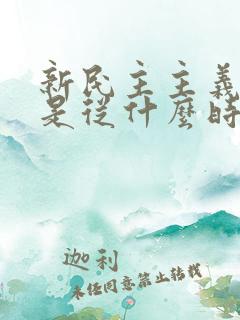 新民主主義
是從什麼時
迦利
未經同意禁止轉載